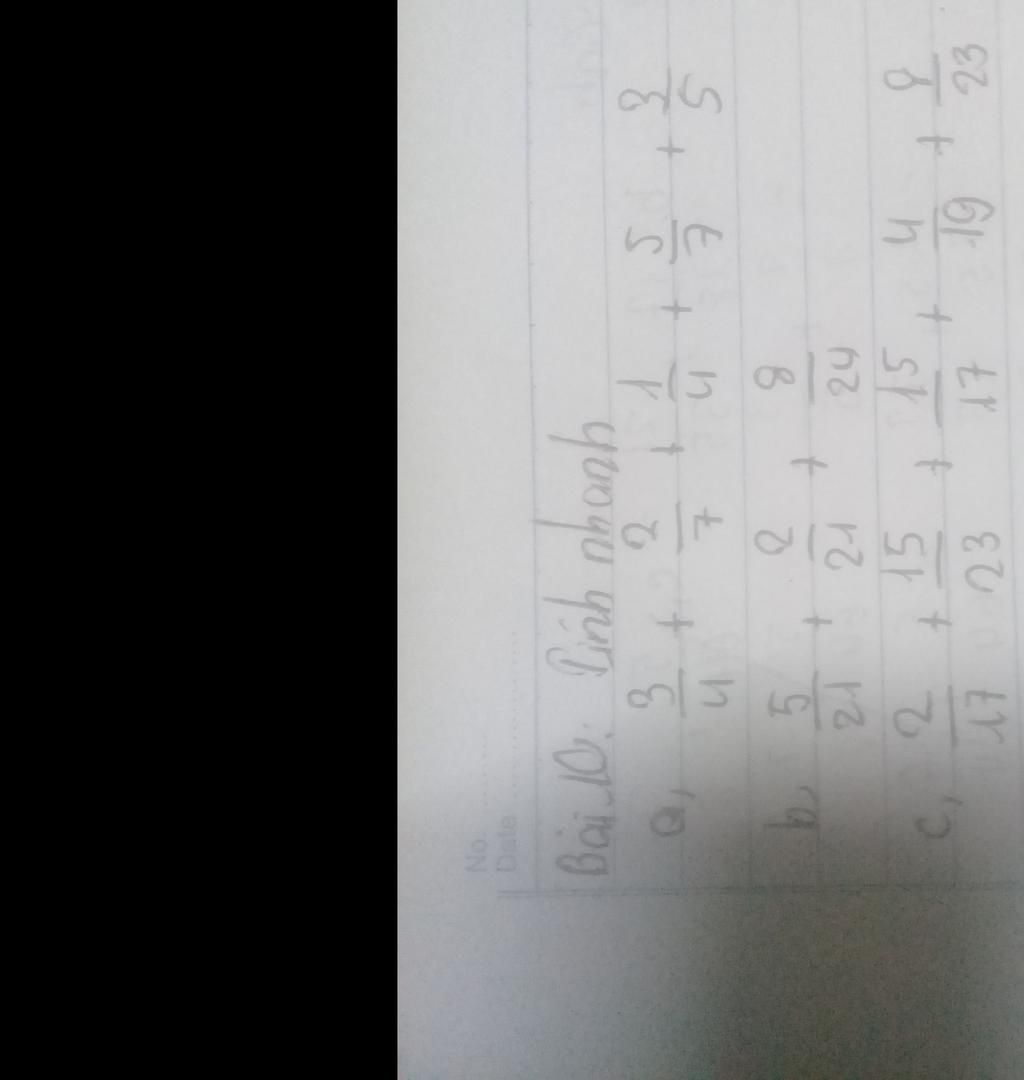 No.
Date
Bài 10. Tính nhanh
a, 3/4 + 2/7 + 1/4 + 5/7 + 3/5
b, 5/21 + 2/21 + 8/24
c, 2/17 + 15/23 + 15/17 + 4/19 + 8/23